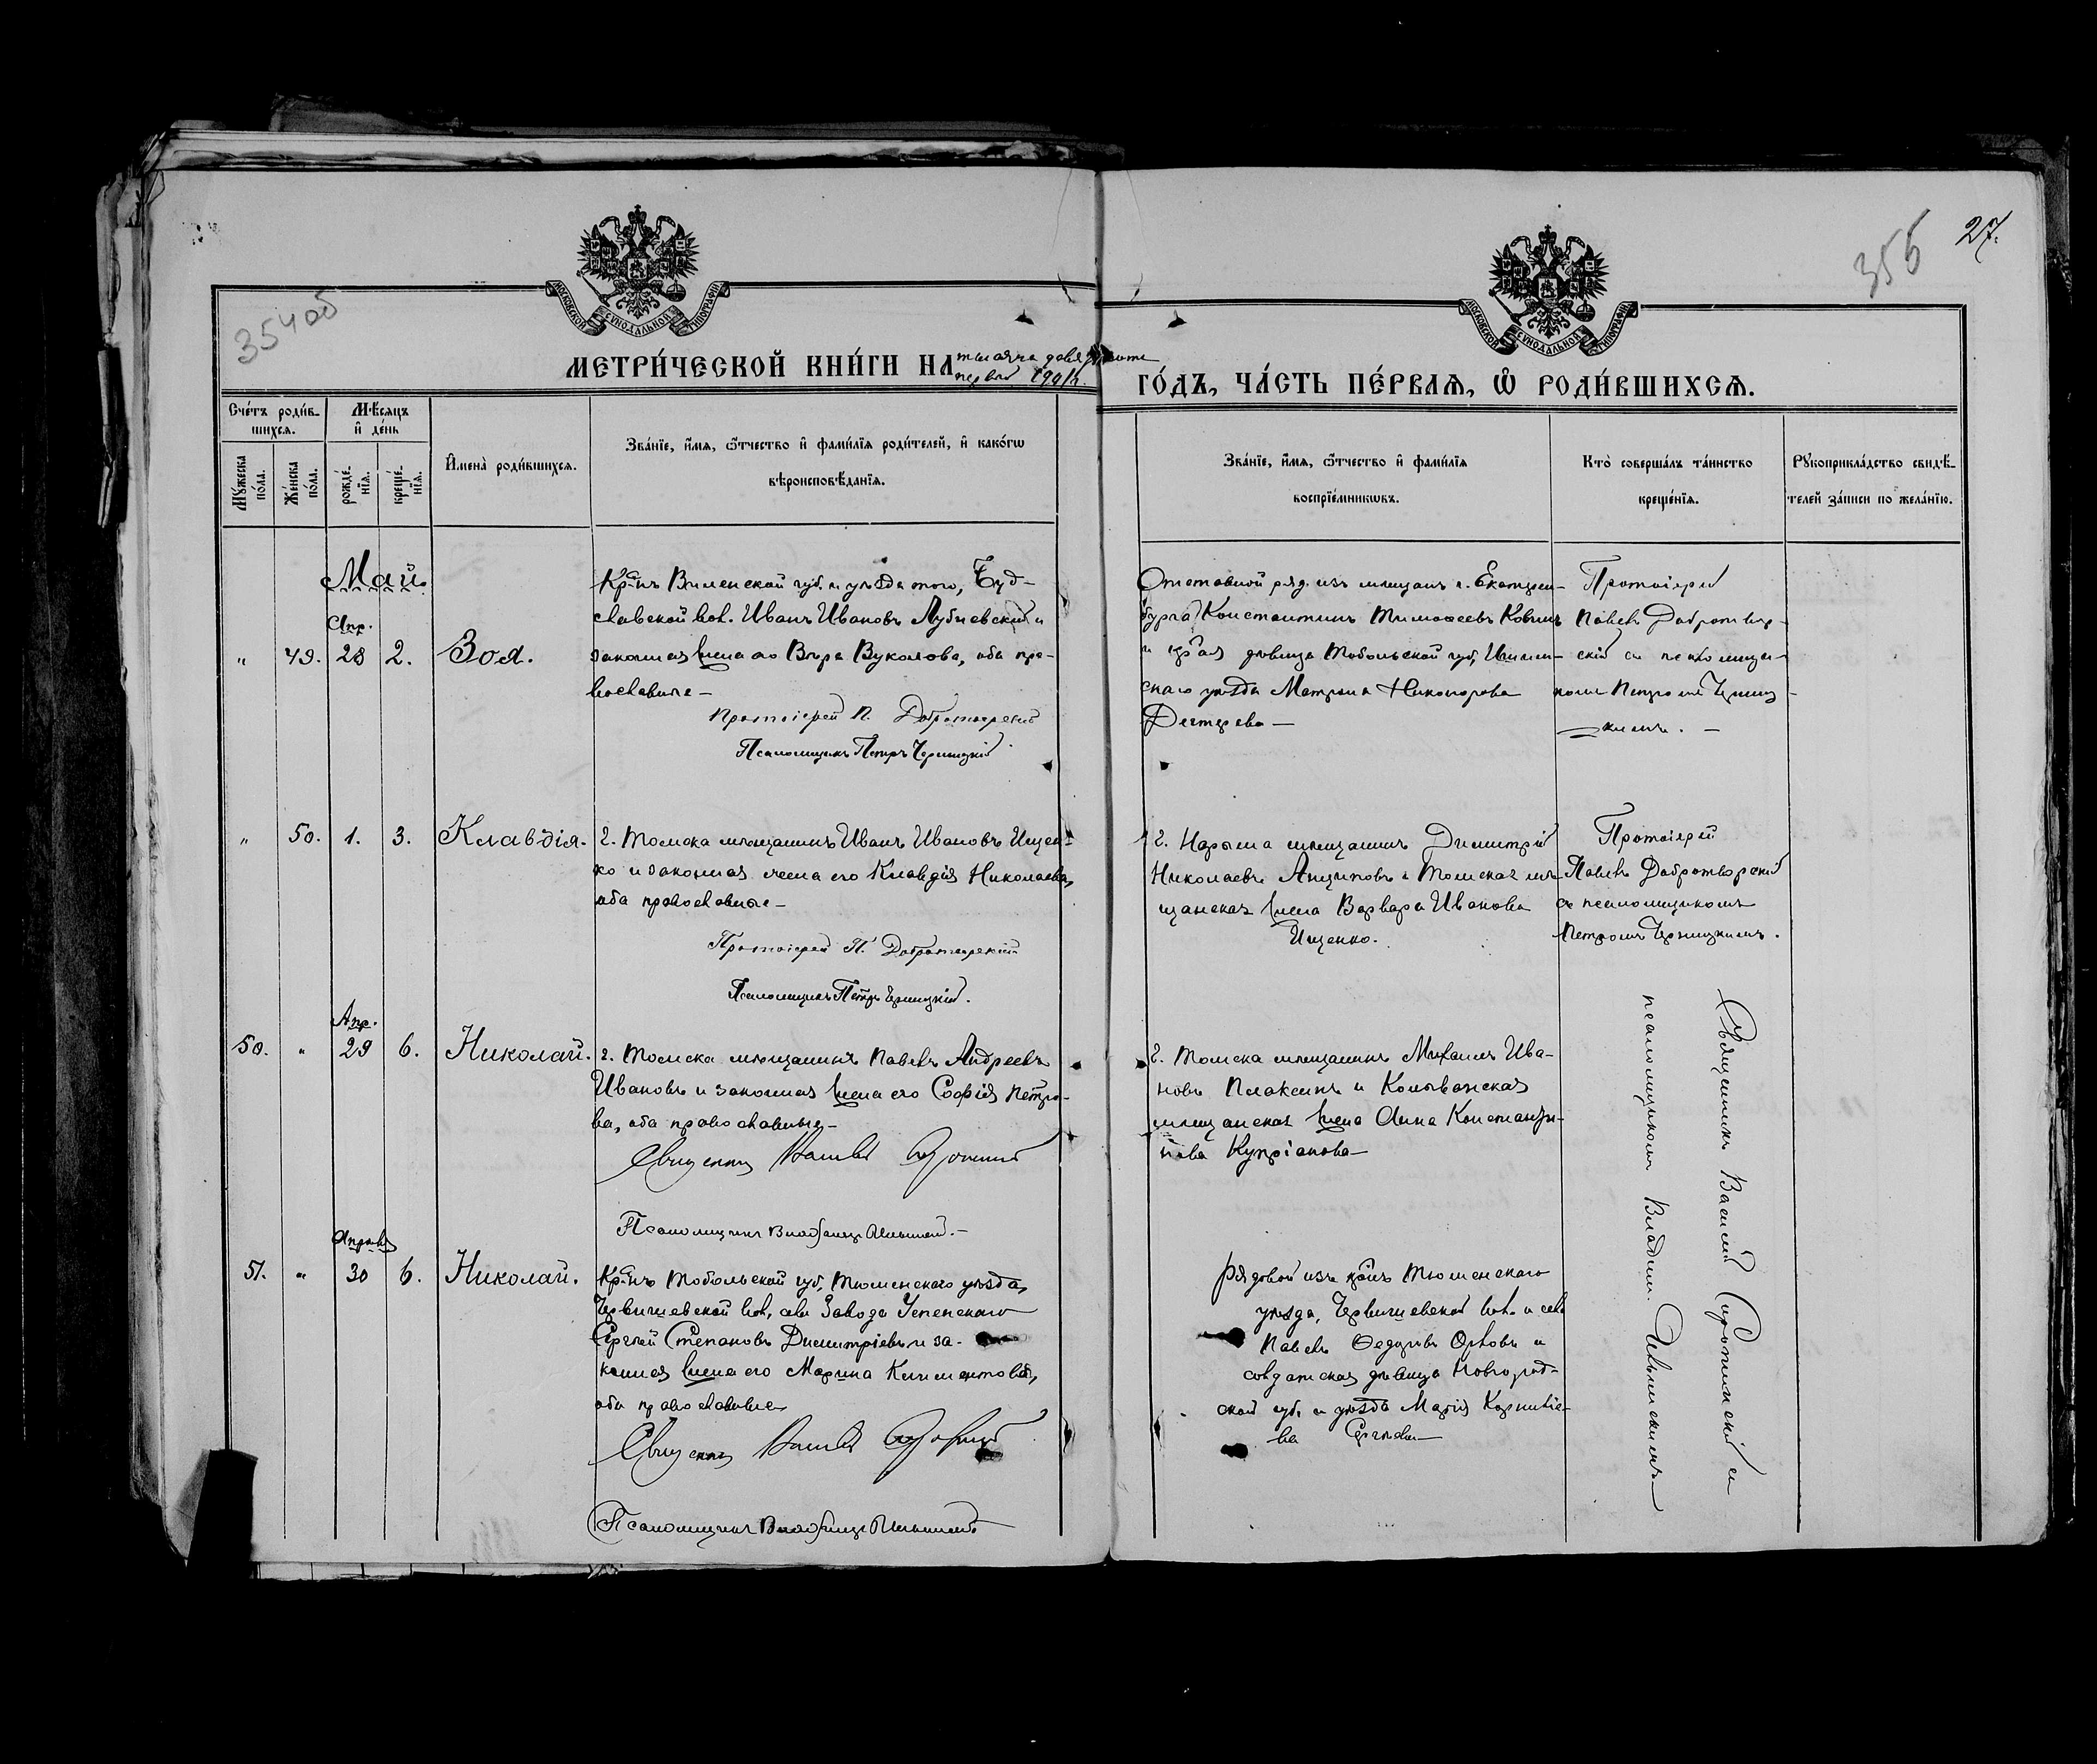 27.
356
35405
МОСКОВСКОЙ СѴНОДАЛЬНОЙ ТИПОГРАФІИ
МОСКОВСКОЙ СѴНОДАЛЬНОЙ ТИПОГРАФІИ
МЕТРИ́ЧЕСКОЙ КНИ́ГИ НА тысяча девятьсотъ
первый 1901й.
ГО́ДЪ, ЧА́СТЬ ПЕ́РВАѦ, Ѽ РОДИ́ВШИХСѦ.
Сче́тъ роди́в-
шихсѧ.
Мѣ́сѧцъ
и҆ де́нь
Мꙋ́жеска
по́ла.
Же́нска
по́ла.
рожде́-
нїѧ.
креще́-
нїѧ.
И҆мена̀ роди́вшихсѧ.
Зва́нїе, и҆́мѧ, ѻ҆́тчество и҆ фами́лїѧ роди́телей, и҆ како́гѡ
вѣроисповѣ́данїѧ.
Зва́нїе, и҆́мѧ, ѻ҆́тчество и҆ фами́лїѧ
воспрїе́мникѡвъ.
Кто̀ соверша́лъ та́инство
креще́нїѧ.
Рꙋкоприкла́дство свидѣ́-
телей за́писи по жела́нїю.
Май.
Апр.
" 49. 28 2. Зоя.
Кр-нъ Виленской губ. и уѣзда того,
славской вол. Иванъ Ивановъ и
законная жена его Вѣра Вуколова, оба пра-
вославные –
Протоіерей П. Добротворскій
Псаломщикъ Петръ Черницкій
Отставной ряд. изъ мѣщанъ г. Екатерин-
бурга Константинъ Тимоѳеевъ
и дѣвица Тобольской губ, Ишим-
скаго уѣзда Матрона Никонорова
Дегтерева –
Протоіерей
Павелъ Добротвор-
скій съ псаломщи-
комъ Петромъ Черниц-
кимъ. –
" 50. 1. 3. Клавдія.
г. Томска мѣщанинъ Иванъ Ивановъ Ищен-
ко и законная жена его Клавдія Николаева,
оба православные –
Протоіерей П. Добротворскій
Псаломщикъ Петръ Черницкій.
г. Нарыма мѣщанинъ Димитрій
Николаевъ и Томская мѣ-
щанская жена Варвара Иванова
Ищенко.
Протоіерей
Павелъ Добротворскій
съ псаломщикомъ
Петромъ Черницкимъ.
Апр.
50. " 29 6. Николай.
г. Томска мѣщанинъ Павелъ Андреевъ
Ивановъ и законная жена его Софія Петро-
ва, оба православные –
Священникъ Василій
Псаломщикъ Владиміръ –
г. Томска мѣщанинъ Михаилъ Ива-
новъ Плаксинъ и Колыванская
мѣщанская жена Анна Константи-
нова Купріянова –
Священникъ Василій съ
псаломщикомъ Владим.
Апрѣль
51. " 30 6. Николай.
Кр-нъ Тобольской губ, Тюменскаго уѣзда,
Червишевской вол, села Завода Успенскаго
Сергѣй Степановъ Димитріевъ и за-
конная жена его Марина Климентова,
оба православные
Священникъ Василій
Псаломщикъ Владиміръ
Рядовой изъ кр-нъ Тюменскаго
уѣзда, Червишевской вол. и села
Павелъ Ѳедоровъ Орловъ и
солдатская дѣвица Новгород-
ской губ, и уѣзда Марія Корниліе-
ва Сергѣева –